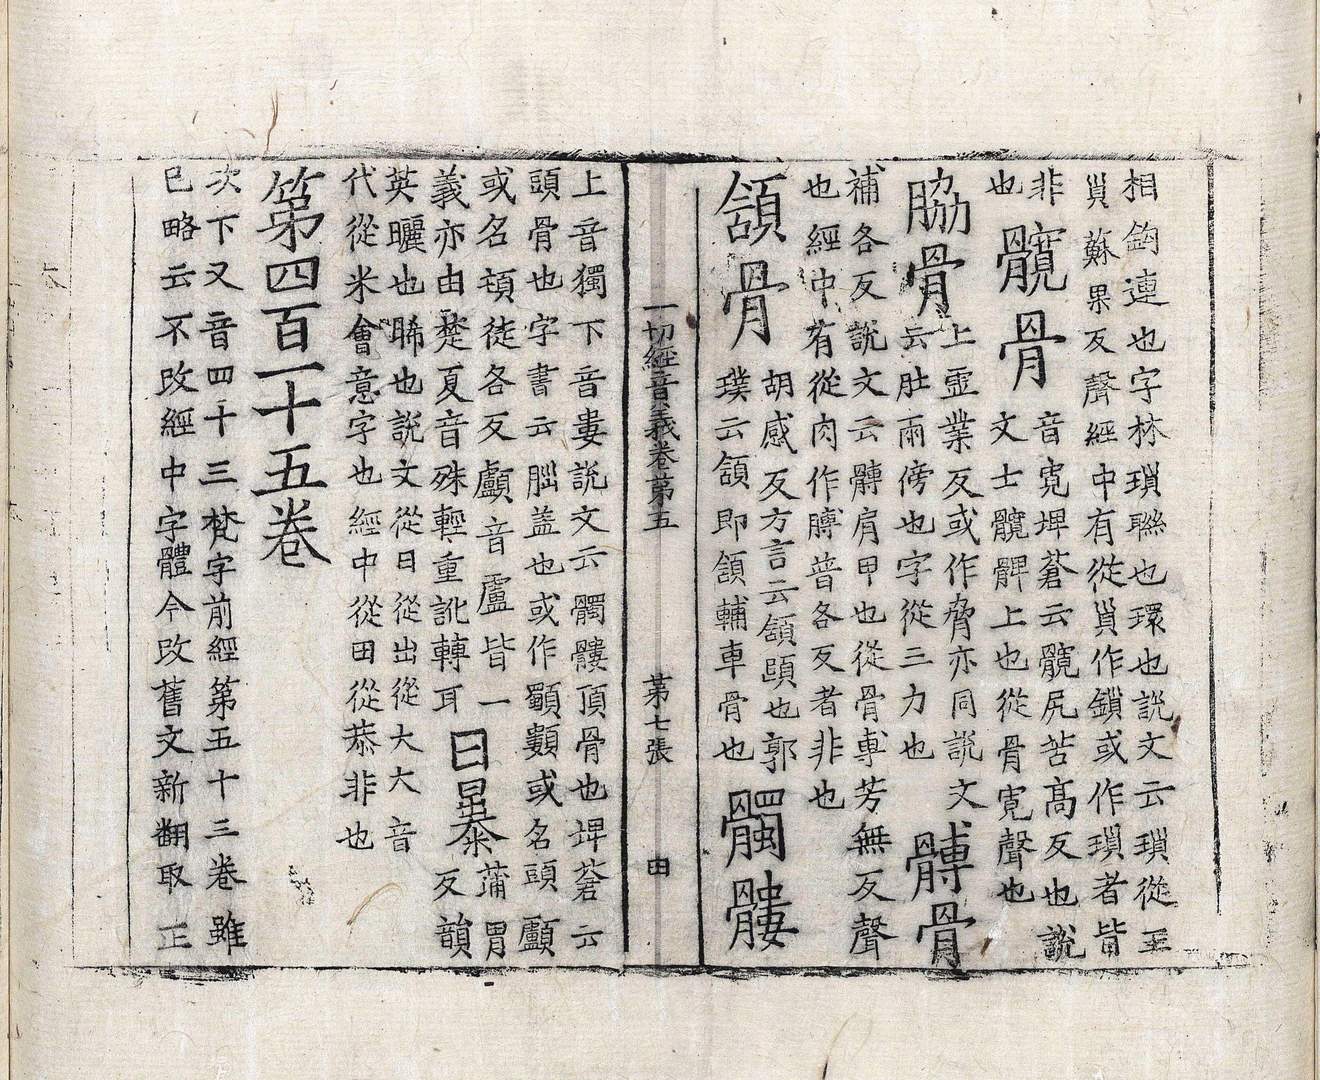 相鉤連也字林瑣聯也環也說文云瑣從玉
貟蘇果反聲經中有從貟作鎖或作璅者皆
非
也
髖骨
音寬埤蒼云髖尻苦高反也說
文士髖髀上也從骨寬聲也
脇骨
上虛業反或作脅亦同說文
云肚兩傍也字從三力也
髆骨
補各反說文云髆肩甲也從骨尃芳無反聲
也經中有從肉作膊普各反者非也
頷骨
胡感反方言云頷頤也郭
璞云頷即頷輔車骨也
髑髏
一切經音義卷第五 第七張 田
上音獨下音婁說文云髑髏頂骨也埤蒼云
頭骨也字書云腦蓋也或作顟䫫或名頭顱
或名頊徒各反顱音盧皆一
義亦由楚夏音殊輕重訛轉耳
曰㬥
蒲冐
反韻
英曬也晞也說文從日從出從大大音
代從米會意字也經中從田從恭非也
第四百一十五卷
次下又音四十三梵字前經第五十三卷雖
已略云不改經中字體今改舊文新翻取正